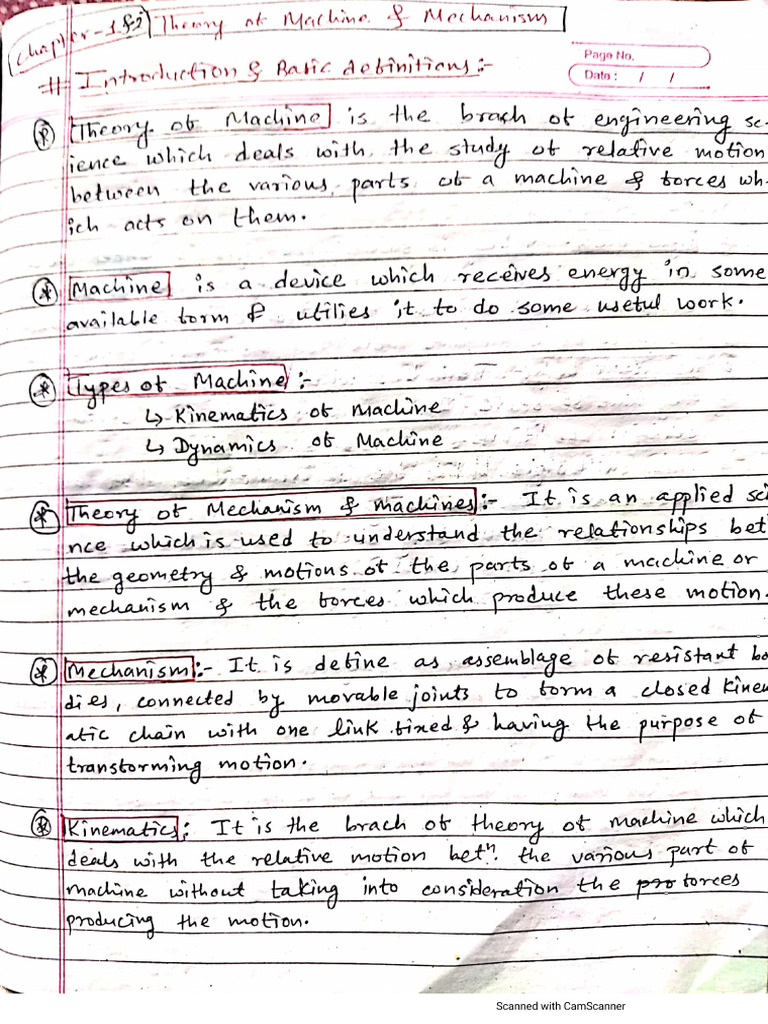 Chapter-1&2 Theory of Machine & Mechanism
# Introduction & Basic definitions:-
Page No.
Date : / /
Theory of Machine is the brach of engineering sc-
ience which deals with the study of relative motion
between the various parts of a machine & forces wh-
ich acts on them.
Machine is a device which receives energy in some
available form & utilies it to do some useful work.
Types of Machine :-
↳ Kinematics of Machine
↳ Dynamics of Machine
Theory of Mechanism & machines :- It is an applied sci
nce which is used to understand the relationships bet
the geometry & motions of the parts of a machine or
mechanism & the forces which produce these motion.
Mechanism :- It is define as assemblage of resistant bo
dies, connected by movable joints to form a closed kinem
atic chain with one link fixed & having the purpose of
transforming motion.
Kinematics : It is the brach of theory of machine which
deals with the relative motion betn. the various part of
machine without taking into consideration the forces
producing the motion.
Scanned with CamScanner